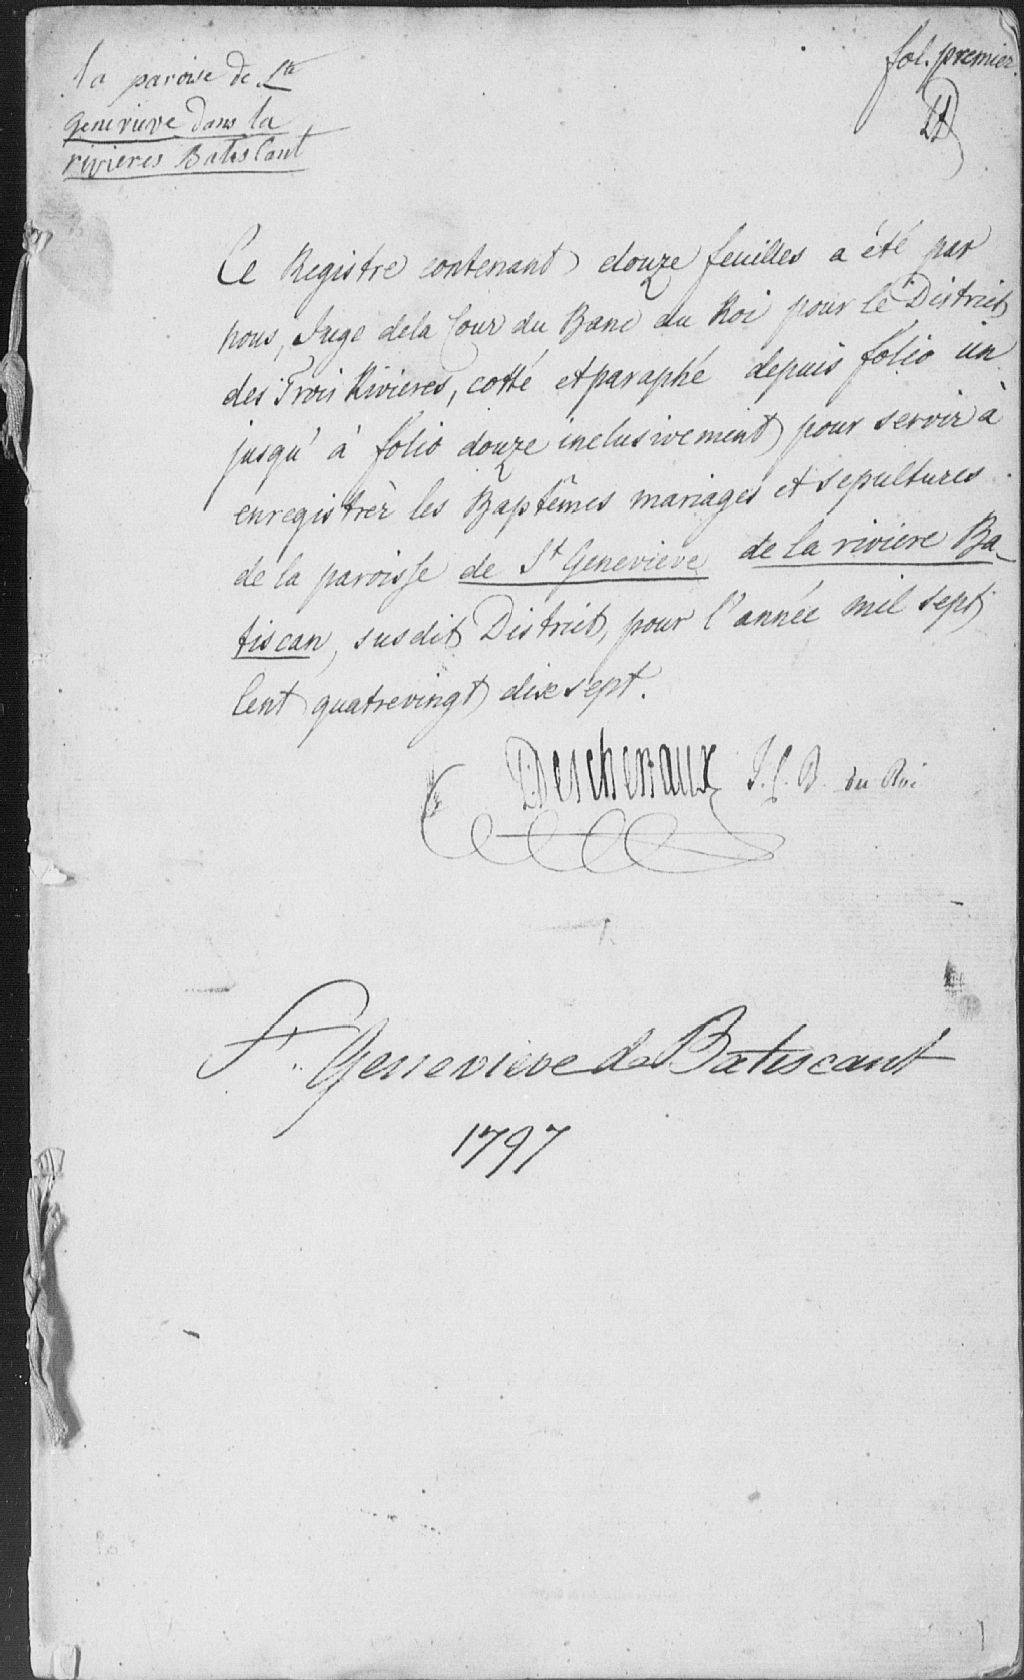 la paroise de Ste
genevieve dans la
rivieres Batiscant
fol. premier.
Ce Registre contenant douze feuilles a été par
nous, Juge dela Cour du Banc du Roi pour le District
des Trois Rivieres, cotté et paraphé depuis folio un
jusqu' à folio douze inclusivement pour servir à
enregistrèr les Baptêmes mariages et sepultures
de la paroisse de St Genevieve de la riviere Ba-
tiscan, susdit District, pour l'année mil sept
Cent quatrevingt dix sept.
Deschenaux J. C. B. du Roi
St. Genevieve de Batiscant
1797